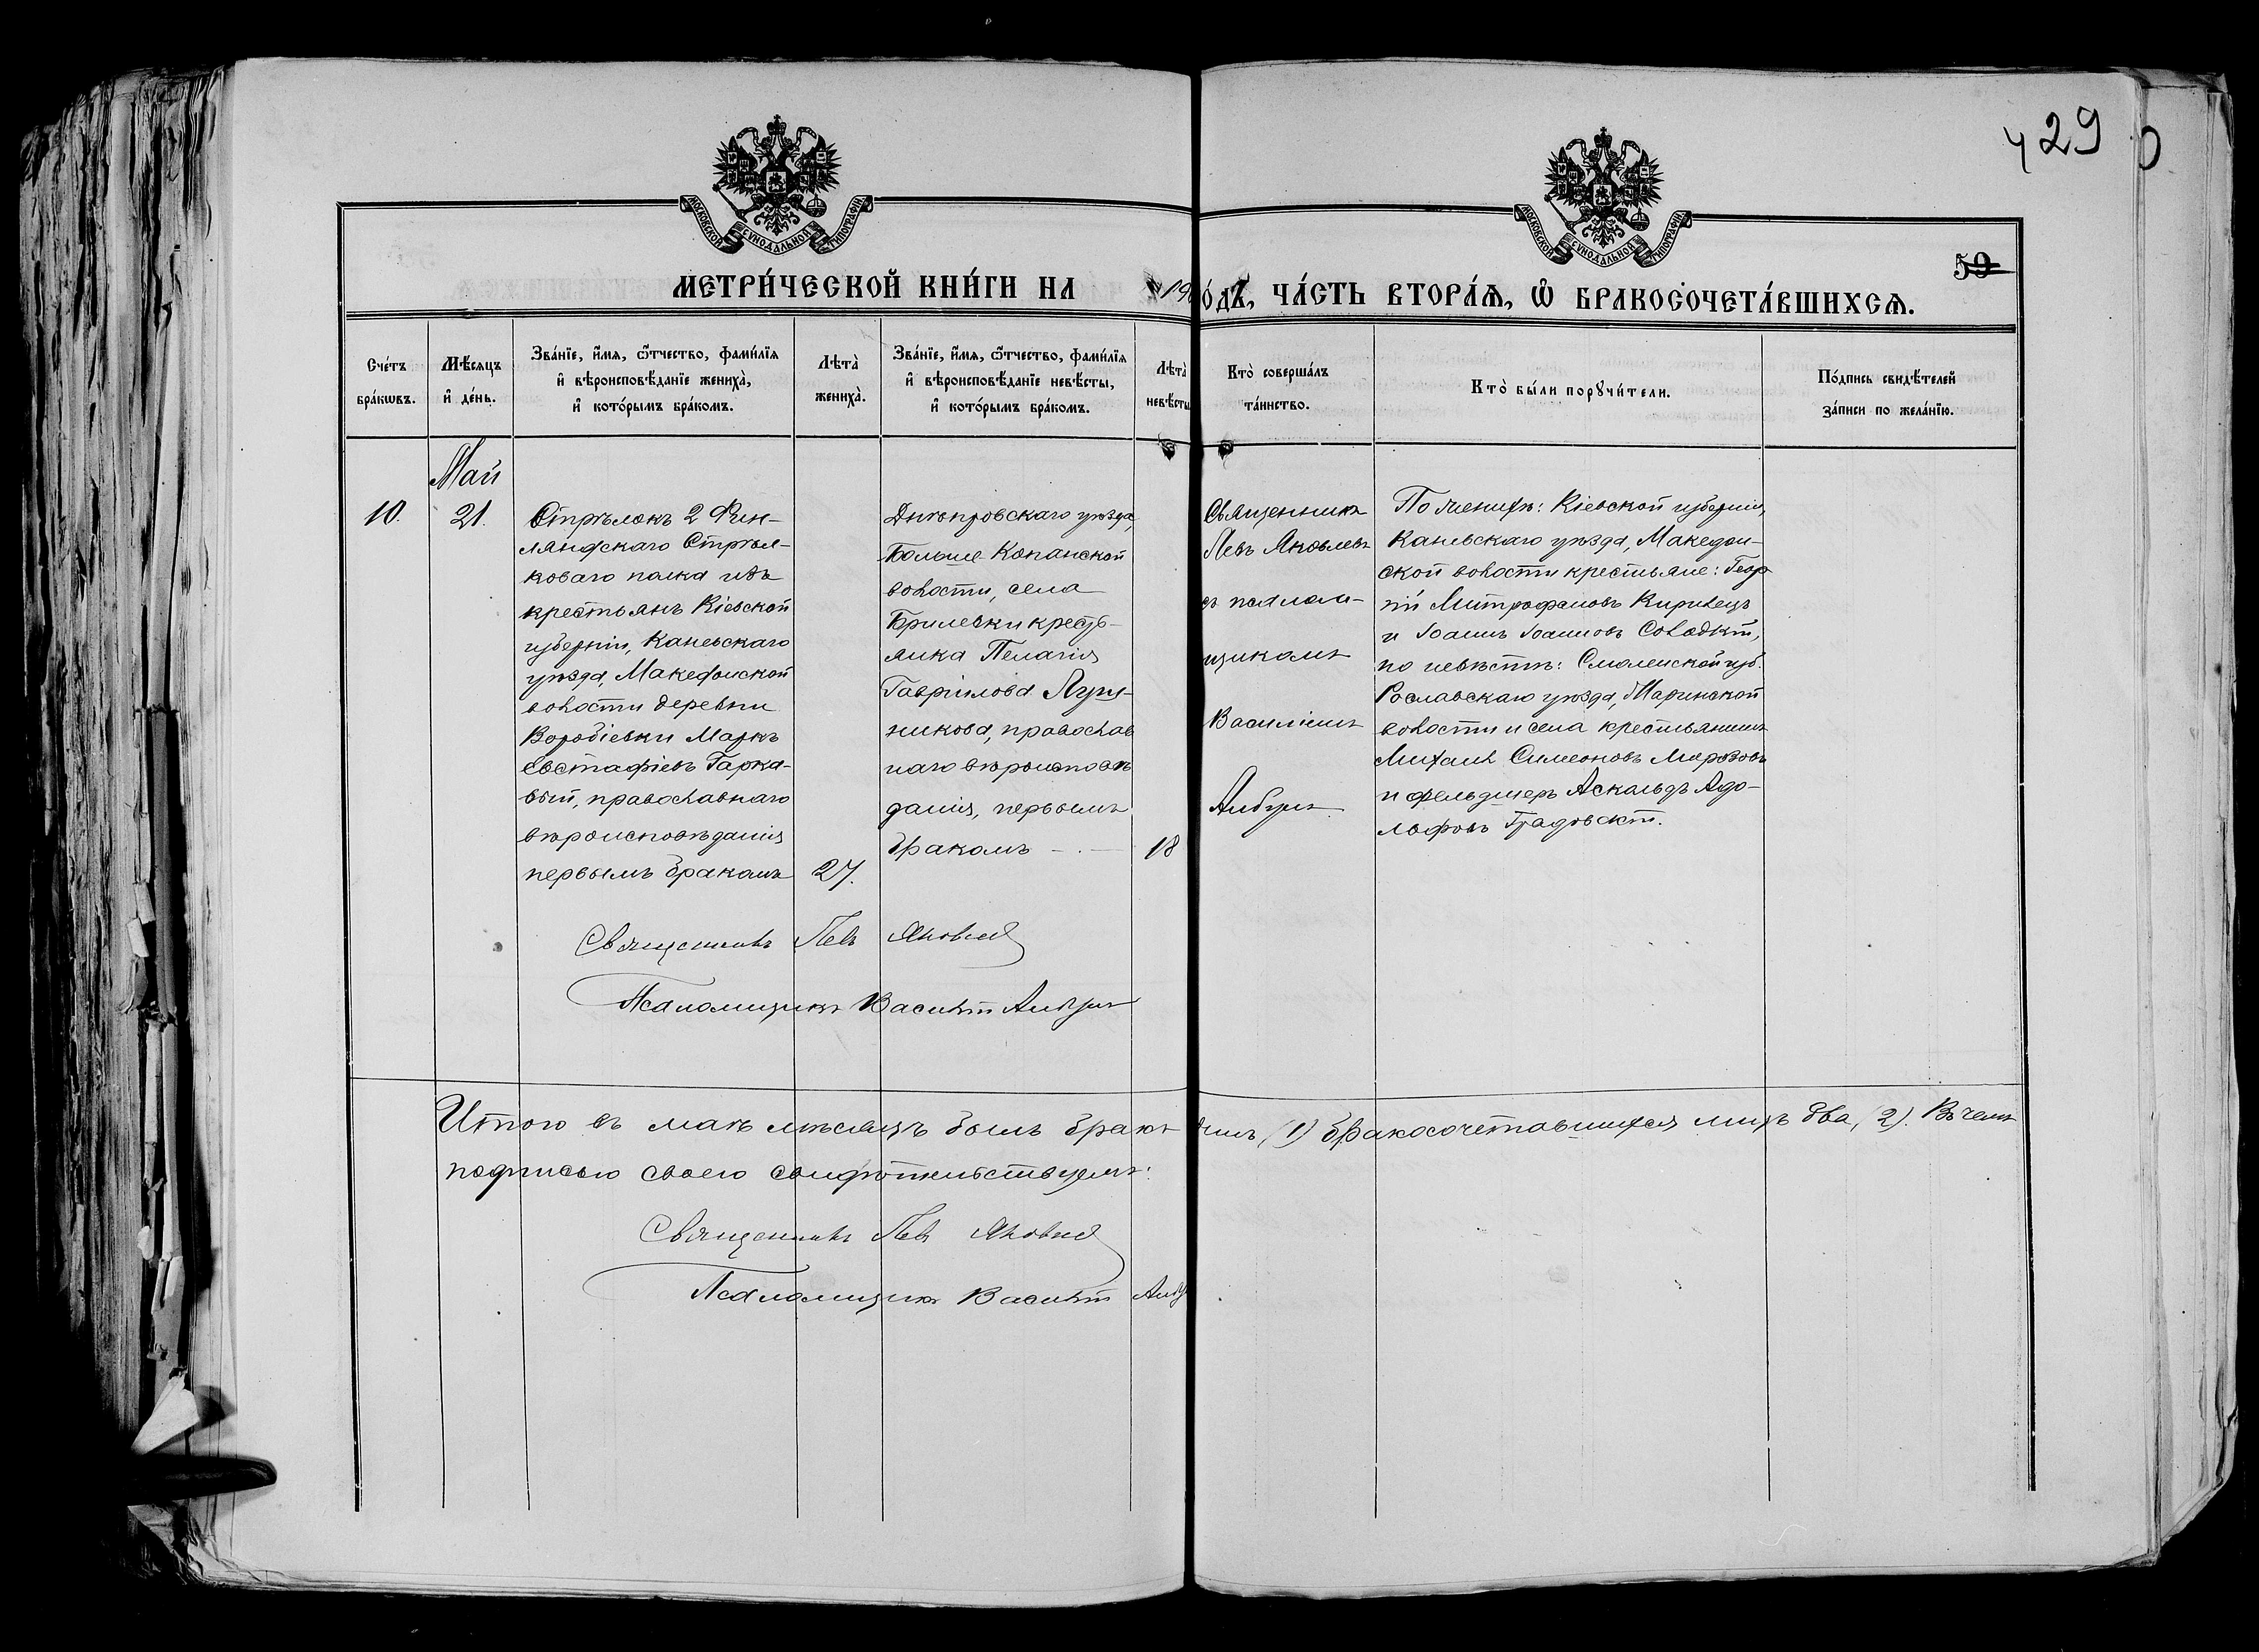 429
59
МОСКОВСКОЙ СѴНОДАЛЬНОЙ ТИПОГРАФІИ
МОСКОВСКОЙ СѴНОДАЛЬНОЙ ТИПОГРАФІИ
МЕТРИ́ЧЕСКОЙ КНИ́ГИ НА 19
О́ДЪ, ЧА́СТЬ ВТОРА́Ѧ, Ѽ БРАКОСОЧЕТА́ВШИХСѦ.
Сче́тъ
бра́кѡвъ.
Мѣ́сяцъ
и҆ де́нь.
Зва́нїе, и҆́мѧ, ѻ҆́тчество, фами́лїѧ
и҆ вѣроисповѣ́данїе жениха̀,
и҆ кото́рымъ бра́комъ.
Лѣта̀
жениха̀.
Зва́нїе, и҆́мѧ, ѻ҆́тчество, фами́лїѧ
и҆ вѣроисповѣ́данїе невѣ́сты,
и҆ кото́рымъ бра́комъ.
Лѣта̀
невѣ́сты
Кто̀ соверша́лъ
та́инство.
Кто̀ бы́ли порꙋчи́тели.
По́дпись свидѣ́телей
за́писи по жела́нїю.
Май
10.
21.
Стрѣлокъ 2 Фин-
ляндскаго Стрѣл-
коваго полка изъ
крестьянъ Кіевской
губерніи, Каневскаго
уѣзда, Македонской
волости деревни
Воробіевки Маркъ
Евстафіевъ Гарка-
вый, православнаго
вѣроисповѣданія
первымъ бракомъ
27.
Днѣпровскаго уѣзда,
Больше Копанской
волости, села
Брилевки кресть-
янка Пелагія
Гавріилова
никова, православ
наго вѣроисповѣ
данія, первымъ
бракомъ
18
Священникъ
Левъ Яковлевъ
съ псалом-
щикомъ
Василіемъ
По женихѣ: Кіевской губерніи,
Каневскаго уѣзда, Македон-
ской волости крестьяне: Геор
гій Митрофановъ Кирилецъ
и Іоаннъ Іоанновъ
по невѣстѣ: Смоленской губ.
Рославскаго уѣзда, Маринской
волости и села крестьянинъ
Михаилъ Симеоновъ Морозовъ
и фельдшеръ Аскольдъ Адо-
льфовъ Градовскій.
Священникъ Левъ Яковлев
Псаломщикъ Василій
Итого въ маѣ мѣсяцѣ былъ бракъ одинъ (1) бракосочетавшихся лицъ два, (2). Въ чемъ
подписью своею свидѣтельствуемъ:
Священникъ Левъ Яковлев
Псаломщикъ Василій